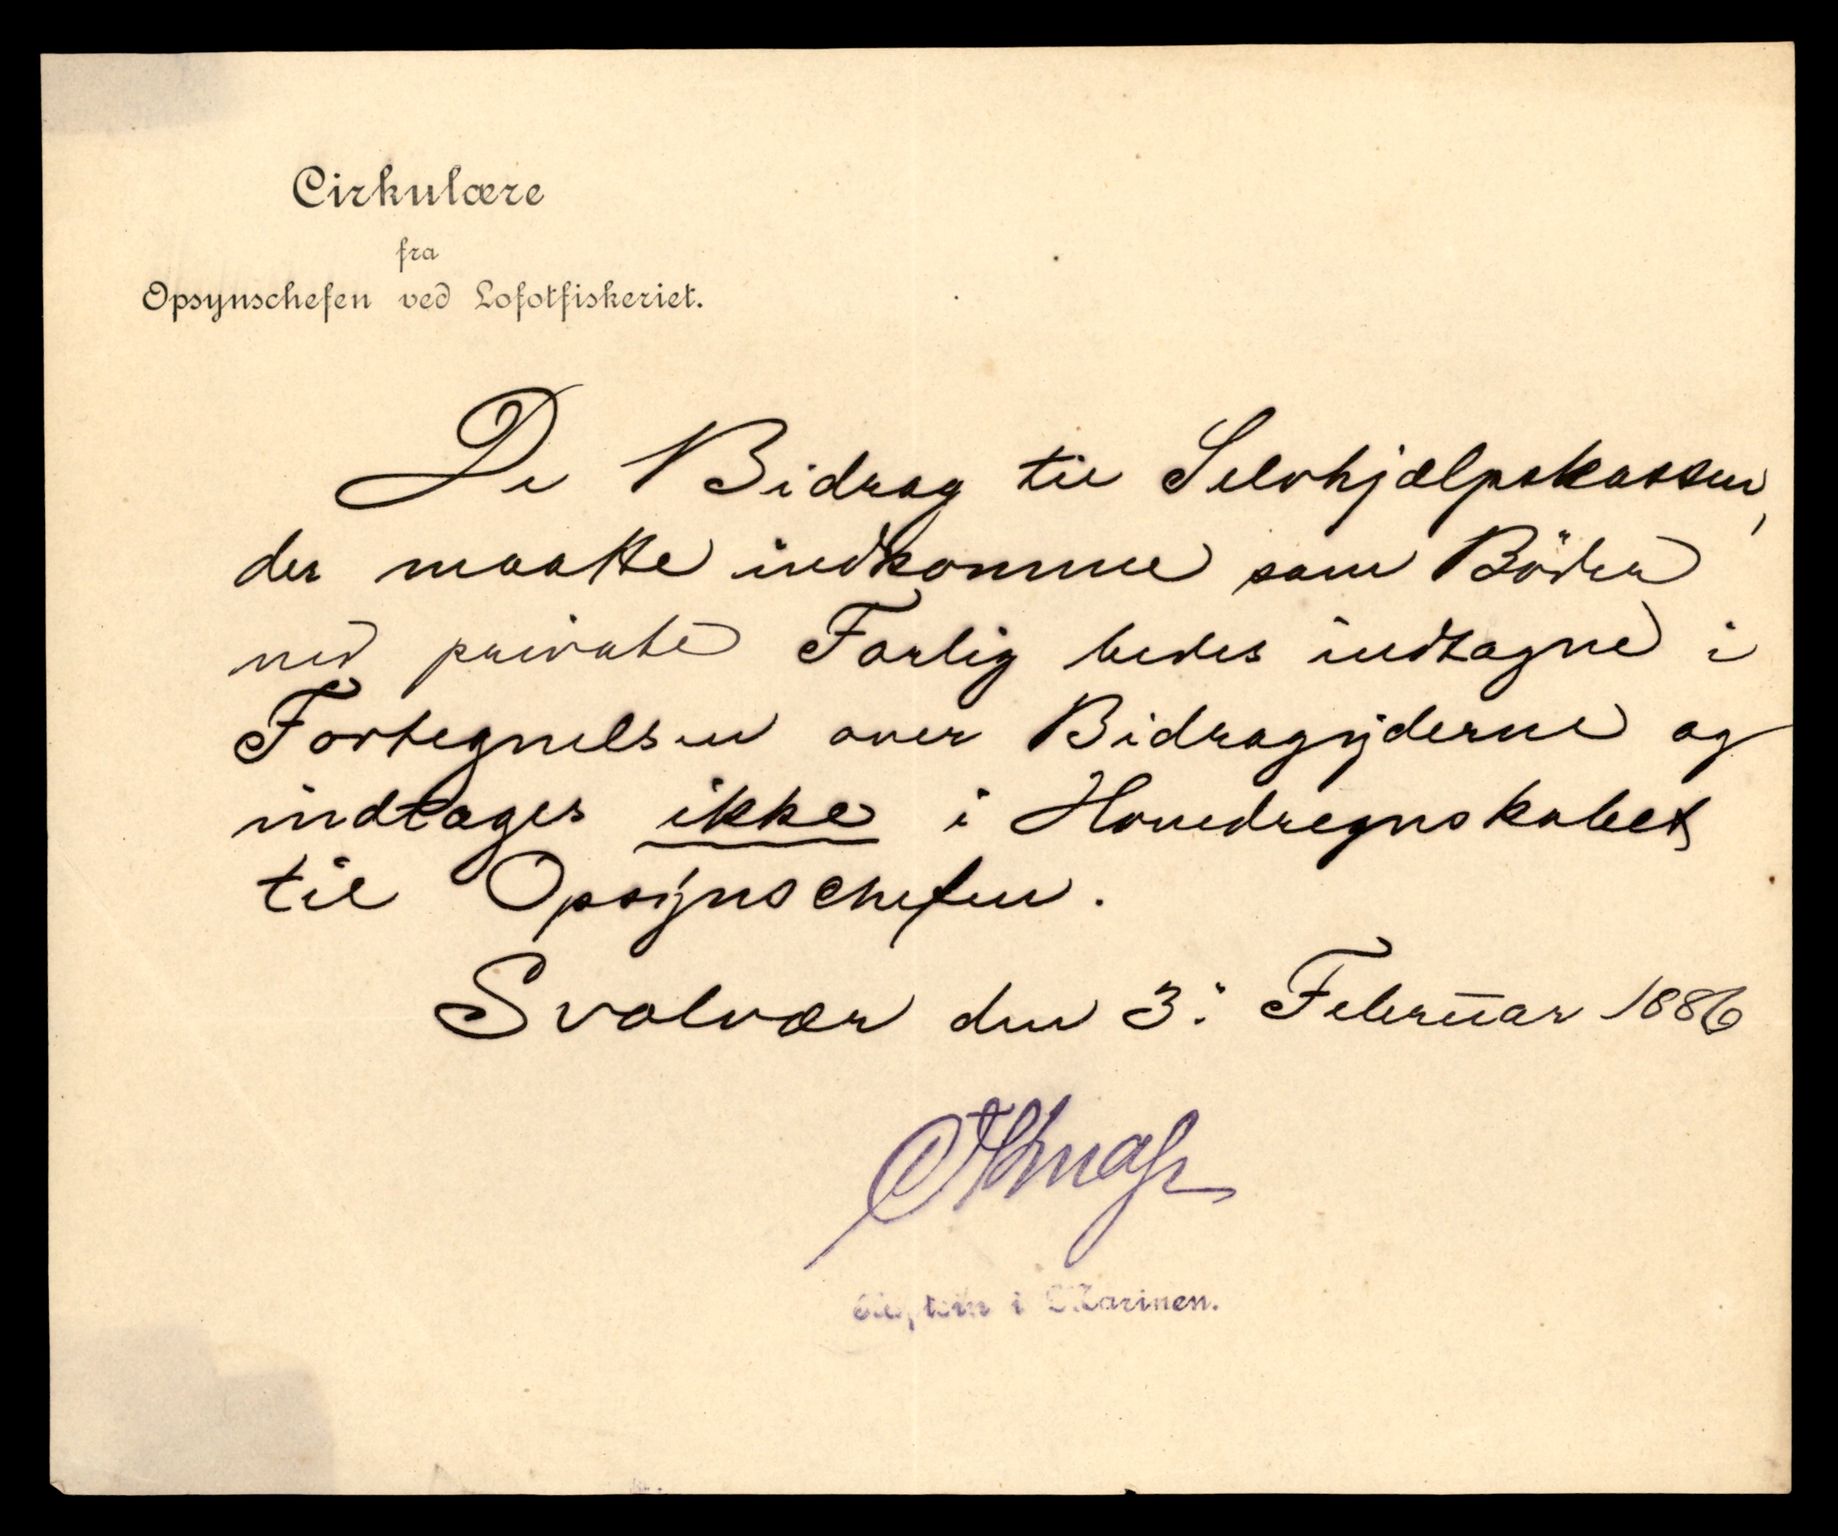 Cirkulære
fra
Opsynschefen ved Lofotfiskeriet.
De Bidrag til Selvhjælpskassen,
der maatte indkomme som Böder
ved private Forlig bedes indtagne i
Fortegnelsen over Bidragyderne og
indtages ikke i Hovedregnskabet
til Opsynschefen.
Svolvær den 3. Februar 1886
Kaptein i Marinen.